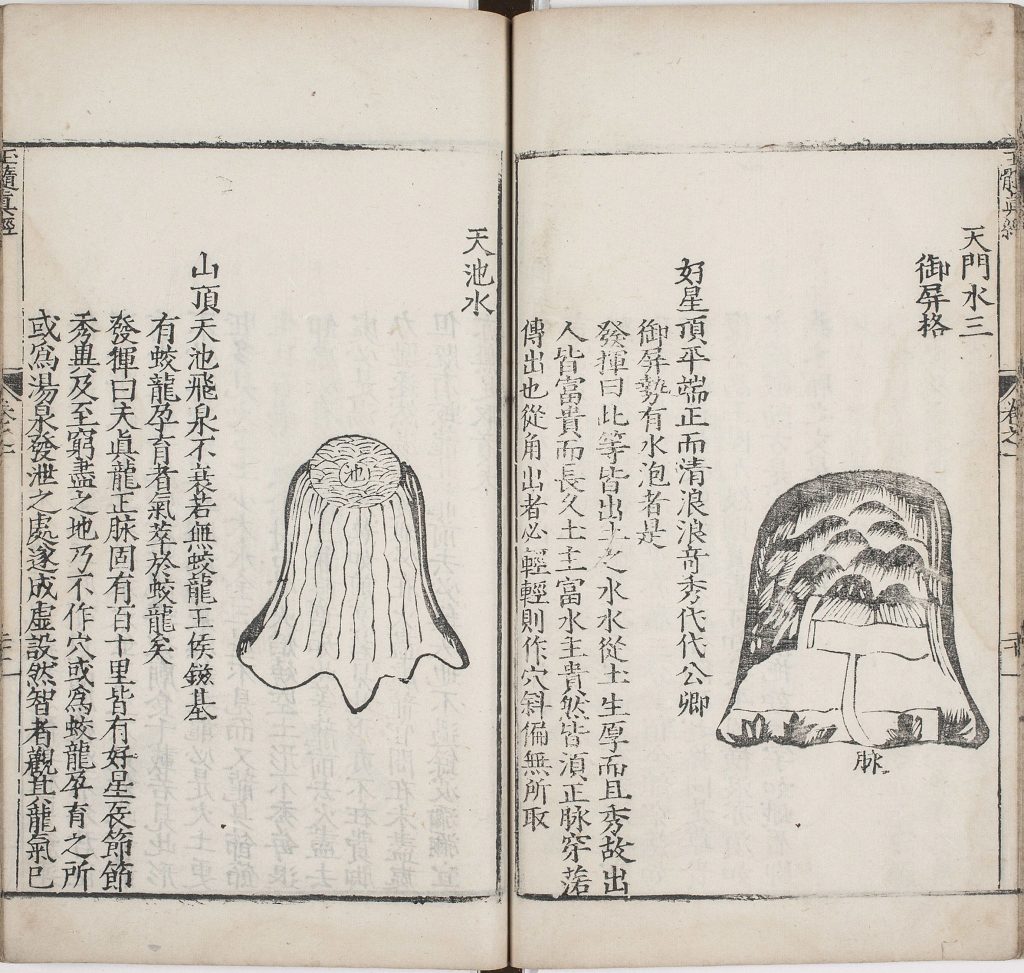 天門水三
御屏格
脉
好星頂平端正而清浪浪竒秀代代公卿
御屏勢有水泡者是
發揮曰比等皆出土之水水從土生厚而且秀故出
人皆富貴而長久土主富水主貴然皆湏正脉穿落
傳出也從角出者必輕輕則作穴斜偏無所取
天池水
池
山頂天池飛泉不衰若無蛟龍王侯鎡基
有蛟龍孕育者氣萃於蛟龍矣
發揮曰夫眞龍正脉固有百十里皆有好星辰節節
秀異及至窮盡之地乃不作穴或爲蛟龍孕育之所
或爲湯泉發泄之處遂成虚設然智者觀其龍氣已
玉髓眞經